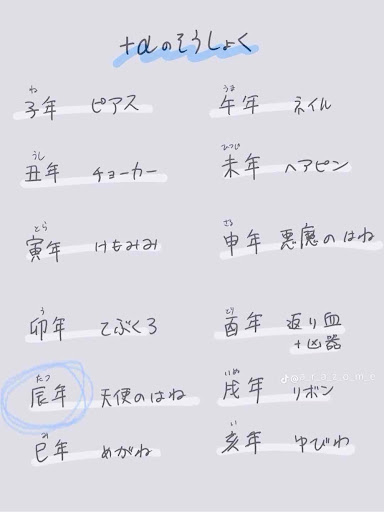 +αのそうしょく
ね
子年 ピアス
うし
丑年 チョーカー
とら
寅年 けもみみ
う
卯年 てぶくろ
たつ
辰年 天使のはね
み
巳年 めがね
うま
午年 ネイル
ひつじ
未年 ヘアピン
さる
申年 悪魔のはね
とり
酉年 返り血
+凶器
いぬ
戌年 リボン
い
亥年 ゆびわ